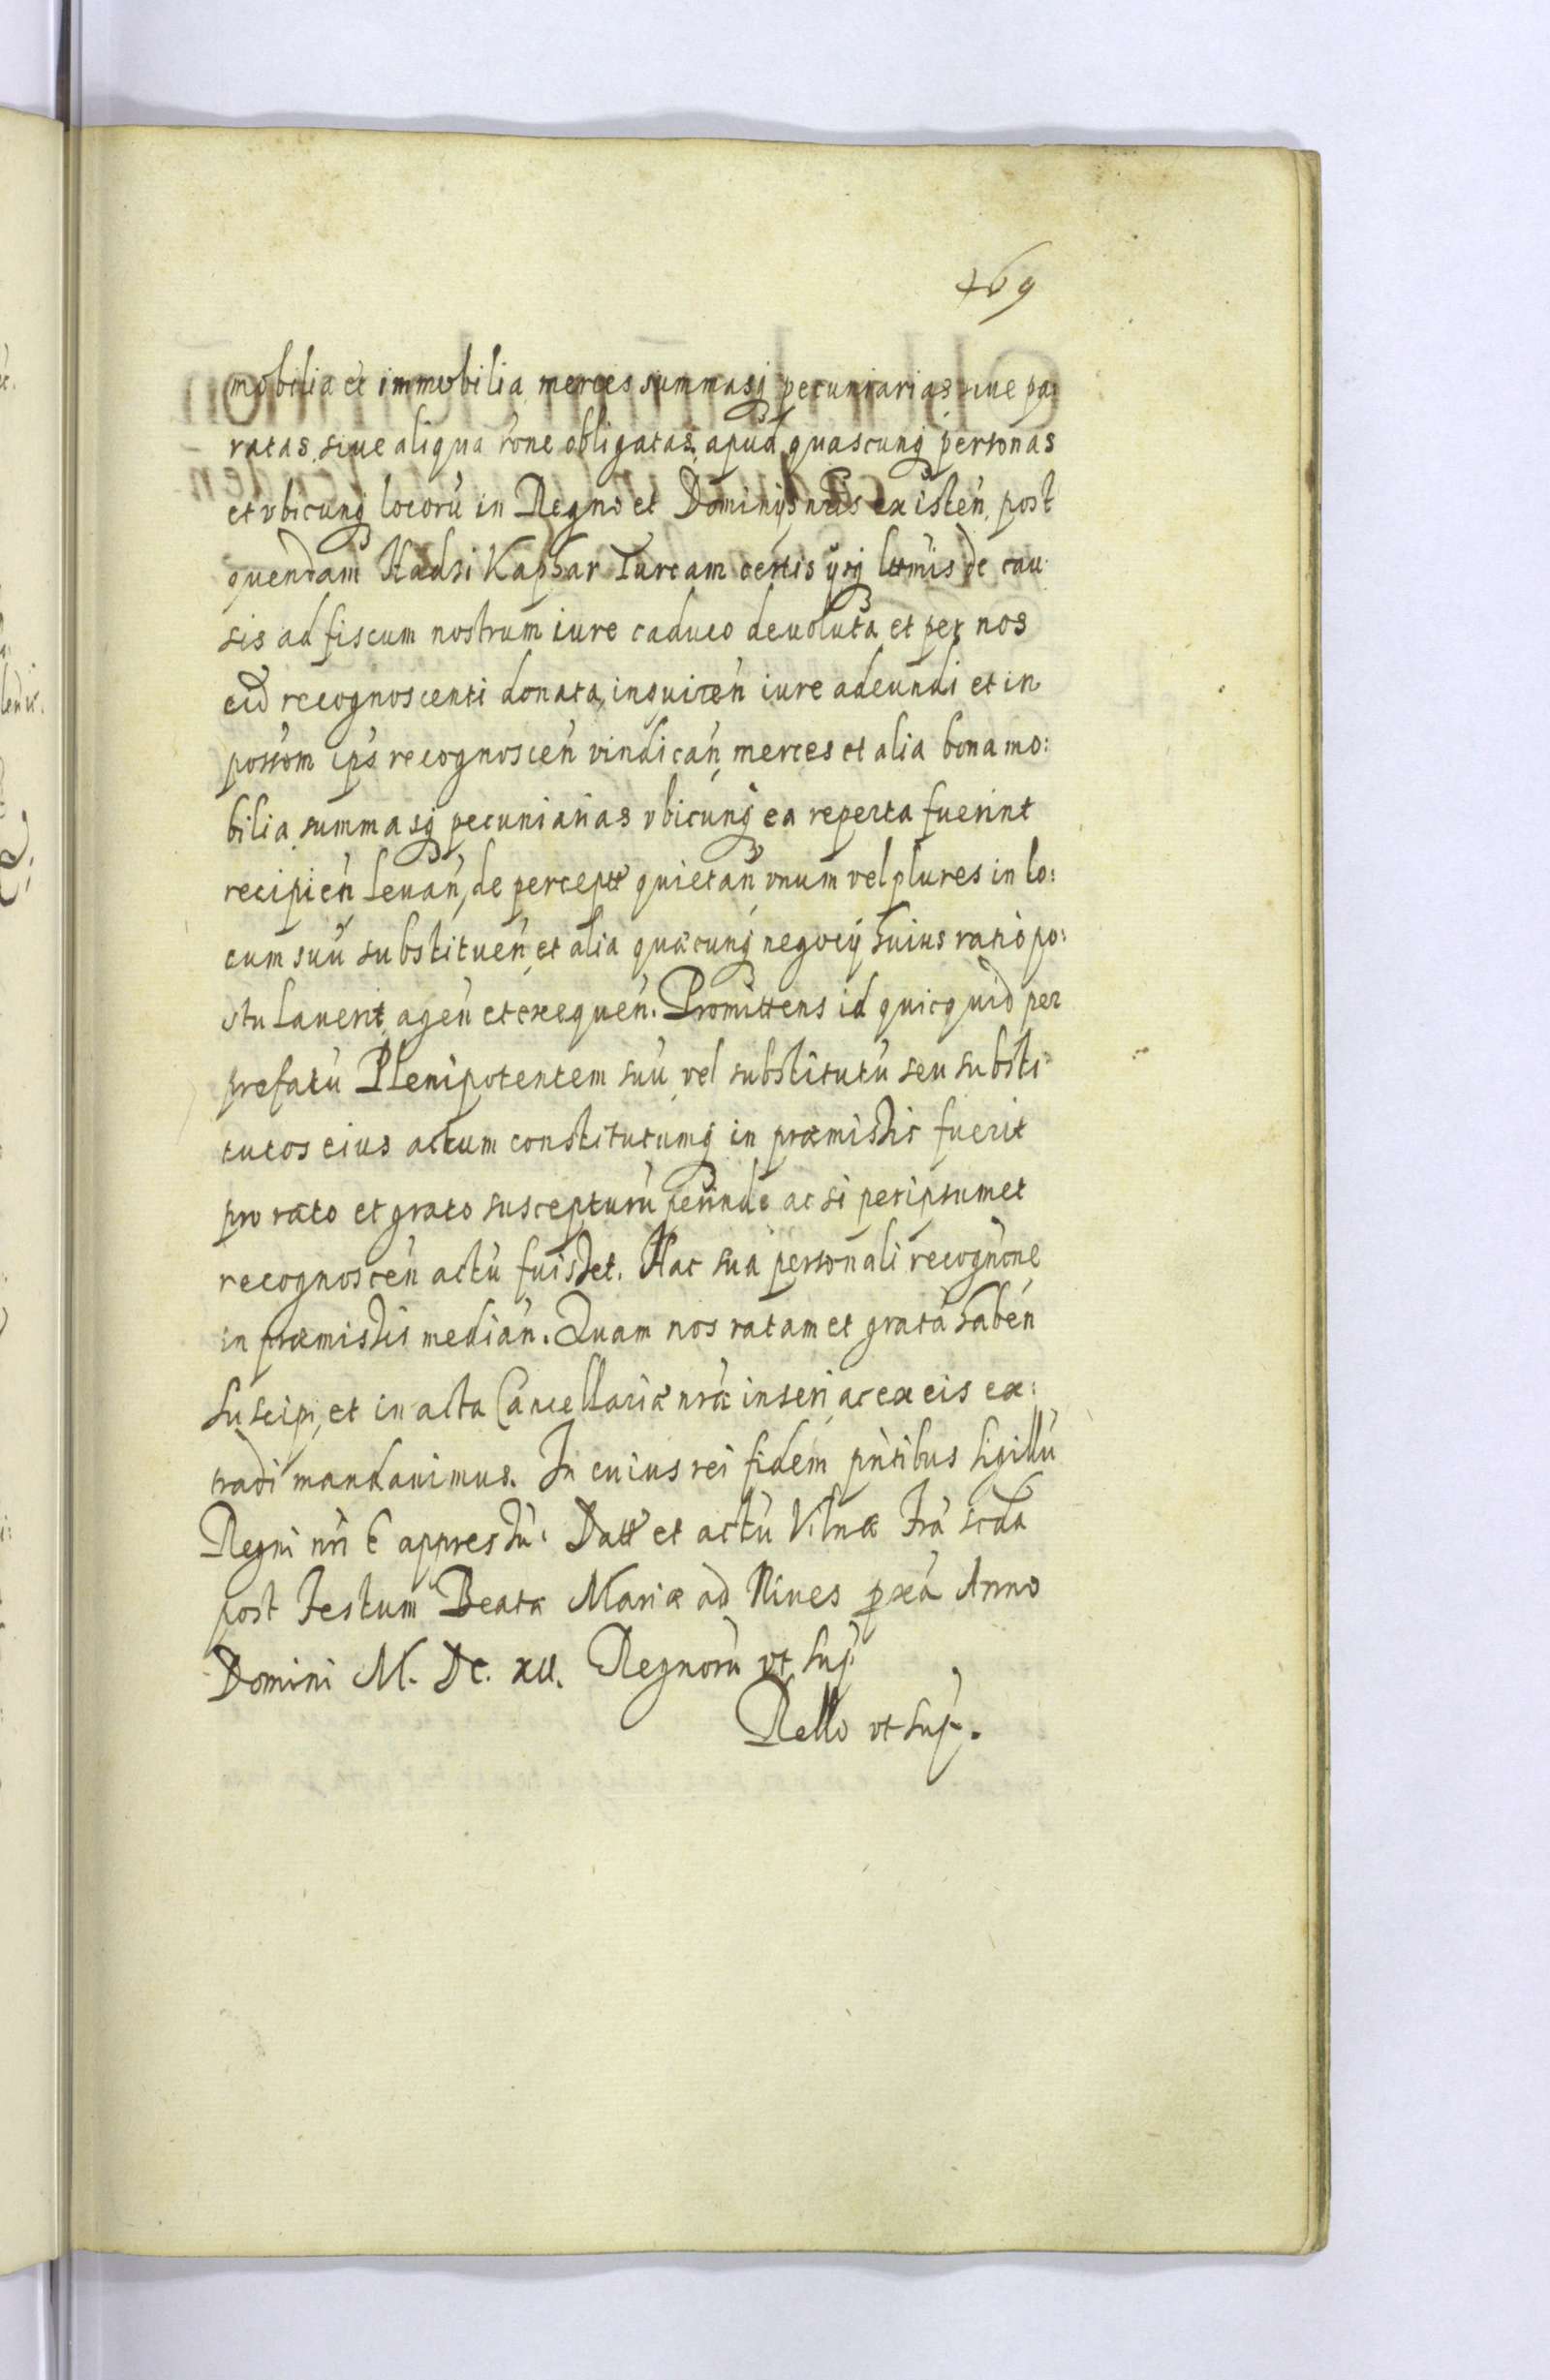 169
mobilia et immobilia merces summasq pecuniarias siue pa:
ratas, siue aliqua rône obligatas, apud quascunq personas
et vbicunq locorú in Regno et Dominijs nris existeń, post
quendam Hadzi Kaphar Turcam certis ijsq lttmis de cau
sis ad fiscum nostrum iure caduco deuoluta et per nos
eid recognoscenti donata, inquireń iure adeundi et in
possom ips recognosceń vindicań, merces et alia bona mo:
bilia summasq pecuniarias vbicunq ea reperta fuerint
recipień leuań, de perceptt quietań vnum vel plures in lo:
cum suú substitueń, et alia quæcunq negocij huius ratio po:
stulauerit, ageń et exequeń. Promittens id quicquid per
prefatú Plenipotentem suú vel substitutú seu substi
tutos eius actum constitutumq in præmissis fuerit
pro rato et grato suscepturú perinde ac si per ipsummet
recognosceń actú fuisset. Hac sua personali recognône
in præmissis mediań. Quam nos ratam et gratá habeń
Suscipi, et in acta Cancellariæ nræ inseri, ac ex eis ex:
tradi mandauimus. In cuius rei fidem pntibus Sigillú
Regni nri ē appressú. Datt et actú Vilnæ fra scda
post Festum Beatæ Mariæ ad Niues pxa Anno
Domini M. DC. XII. Regnorú vt sup.
Rello vt sup.